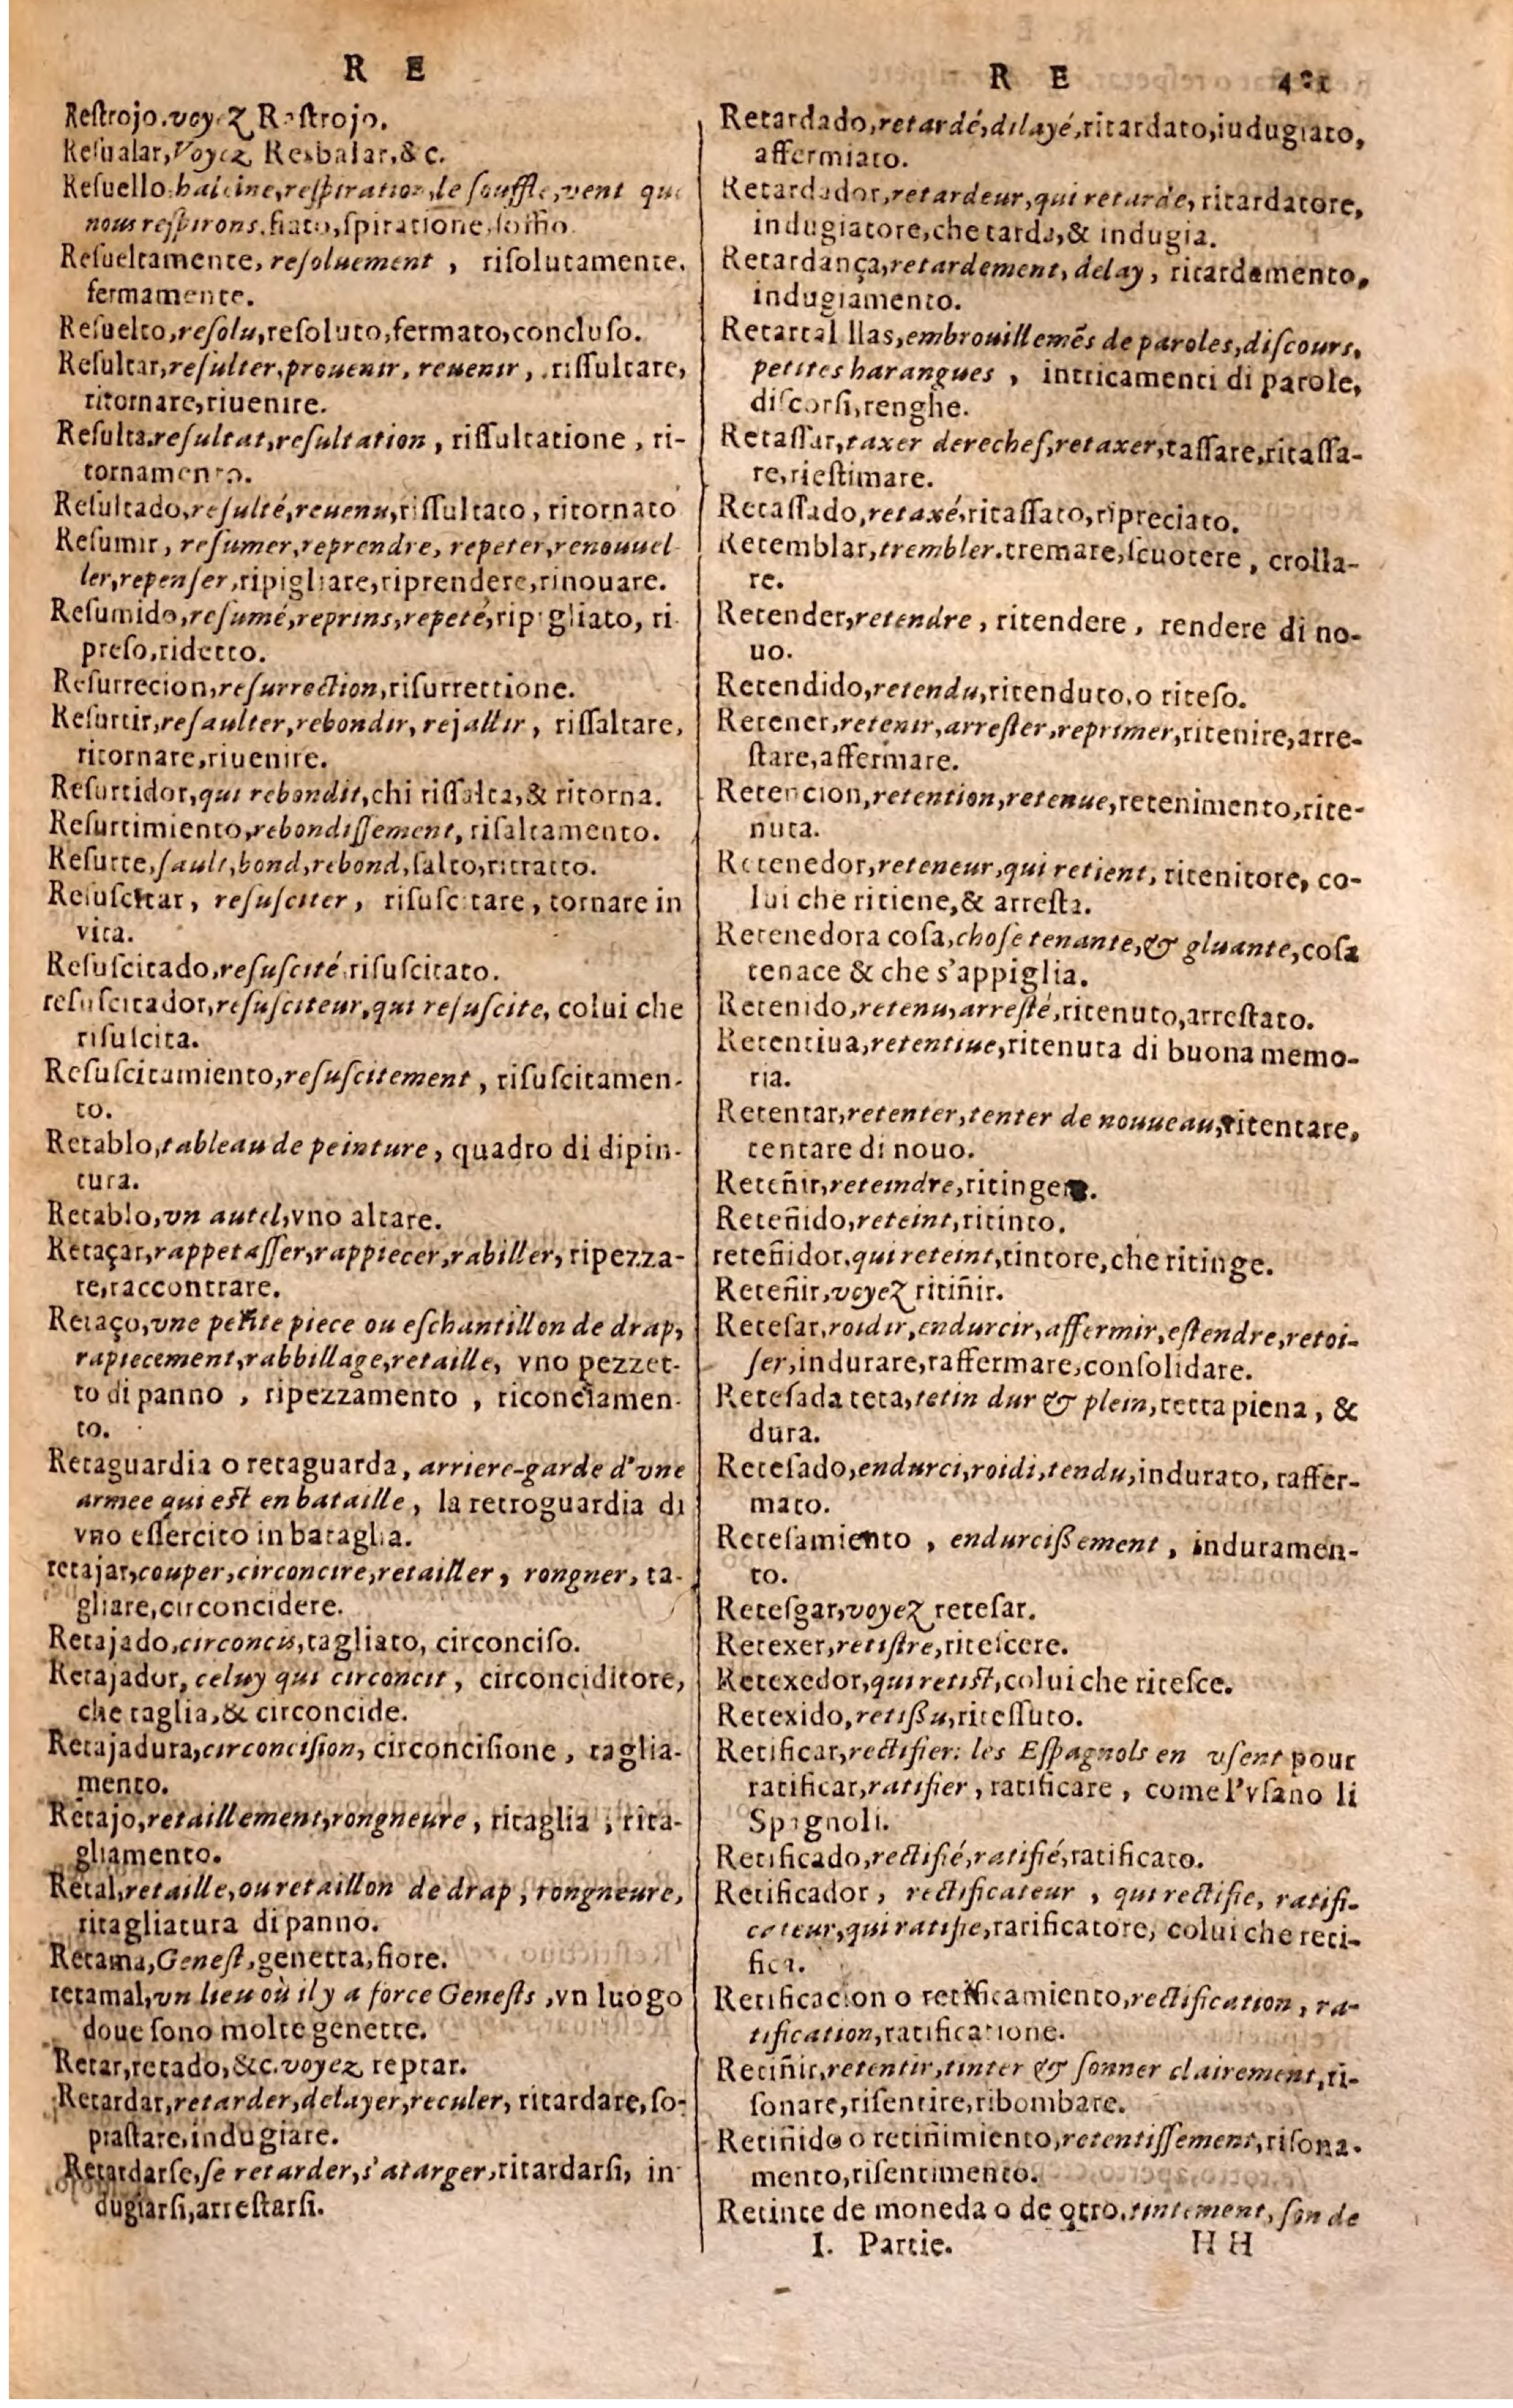 R E
Reſtrojo, voyez Raſtrojo.
Reſualar, Voyez Resbalar, &c.
Reſuello, haleine, reſpiration, le ſouffle, vent que
nous reſpirons, fiato, ſpiratione, ſoffio.
Reſueltamente, reſoluement , riſolutamente,
fermamente.
Reſuelto, reſolu, reſoluto, fermato, concluſo.
Reſultar, reſulter, prouenir, reuenir, riſſultare,
ritornare, riuenire.
Reſulta, reſultat, reſultation, riſſultatione, ri-
tornamento.
Reſultado, reſulté, reuenu, riſſultato, ritornato
Reſumir, reſumer, reprendre, repeter, renouuel
ler, repenſer, ripigliare, riprendere, rinouare.
Reſumido, reſumé, reprins, repeté, ripigliato, ri
preſo, ridetto.
Reſurrecion, reſurrection, riſurrettione.
Reſurtir, reſaulter, rebondir, rejallir, riſſaltare,
ritornare, riuenire.
Reſurtidor, qui rebondit, chi riſſalta, & ritorna.
Reſurtimiento, rebondiſſement, riſaltamento.
Reſurte, ſault, bond, rebond, ſalto, ritratto.
Reſuſcitar, reſuſciter, riſuſcitare, tornare in
vita.
Reſuſcitado, reſuſcité, riſuſcitato.
reſuſcitador, reſuſciteur, qui reſuſcite, colui che
riſulcita.
Reſuſcitamiento, reſuſcitement, riſuſcitamen-
to.
Retablo, tableau de peinture, quadro di dipin-
tura.
Retablo, vn autel, vno altare.
Retaçar, rappetaſſer, rappiecer, rabiller, ripezza-
re, raccontrare.
Retaço, vne petite piece ou eſchantillon de drap,
rapiecement, rabbillage, retaille, vno pezzet-
to di panno , ripezzamento , riconciamen-
to.
Retaguardia o retaguarda, arriere-garde d'vne
armee qui eſt en bataille, la retroguardia di
vno eſſercito in bataglia.
retajar, couper, circoncire, retailler, rongner, ta-
gliare, circoncidere.
Retajado, circoncis, tagliato, circonciſo.
Retajador, celuy qui circoncit, circonciditore,
che taglia, & circoncide.
Retajadura, circonciſion, circonciſione, taglia-
mento.
Retajo, retaillement, rongneure, ritaglia, rita-
gliamento.
Retal, retaille, ou retaillon de drap, rongneure,
ritagliatura di panno.
Retama, Geneſt, genetta, fiore.
retamal, vn lieu où il y a force Geneſts, vn luogo
doue ſono molte genette.
Retar, retado, &c. voyez reptar.
Retardar, retarder, delayer, reculer, ritardare, ſo-
praſtare, indugiare.
Retardarſe, ſe retarder, s'atarger, ritardarſi, in
dugiarſi, arreſtarſi.
R E 481
Retardado, retardé, dilayé, ritardato, iudugiato,
affermiato.
Retardador, retardeur, qui retarde, ritardatore,
indugiatore, che tarda, & indugia.
Retardança, retardement, delay, ritardamento,
indugiamento.
Retartalillas, embrouillemẽs de paroles, diſcours,
petites harangues , intricamenti di parole,
diſcorſi, renghe.
Retaſſar, taxer derechef, retaxer, taſſare, ritaſſa-
re, rieſtimare.
Retaſſado, retaxé, ritaſſato, ripreciato.
Retemblar, trembler, tremare, ſcuotere, crolla-
re.
Retender, retendre, ritendere, rendere di no-
uo.
Retendido, retendu, ritenduto, o riteſo.
Retener, retenir, arreſter, reprimer, ritenire, arre-
ſtare, affermare.
Retencion, retention, retenue, retenimento, rite-
nuta.
Retenedor, reteneur, qui retient, ritenitore, co-
lui che ritiene, & arreſta.
Retenedora coſa, choſe tenante, & gluante, coſa
tenace & che s'appiglia.
Retenido, retenu, arreſté, ritenuto, arreſtato.
Retentiua, retentiue, ritenuta di buona memo-
ria.
Retentar, retenter, tenter de nouueau, ritentare,
tentare di nouo.
Reteñir, reteindre, ritingere.
Reteñido, reteint, ritinto.
reteñidor, qui reteint, tintore, che ritinge.
Reteñir, voyez ritiñir.
Reteſar, roidir, endurcir, affermir, eſtendre, retoi-
ſer, indurare, raffermare, conſolidare.
Reteſada teta, tetin dur & plein, tetta piena, &
dura.
Reteſado, endurci, roidi, tendu, indurato, raffer-
mato.
Reteſamiento , endurcißement , induramen-
to.
Reteſgar, voyez reteſar.
Retexer, retiſtre, riteſcere.
Retexedor, qui retiſt, colui che riteſce.
Retexido, retißu, riteſſuto.
Retificar, rectifier: les Eſpagnols en vſent pour
ratificar, ratifier, ratificare, come l'vſano li
Spagnoli.
Retificado, rectifié, ratifié, ratificato.
Retificador, rectificateur, qui rectifie, ratifi-
cateur, qui ratifie, ratificatore, colui che reti-
fica.
Retificacion o retificamiento, rectification, ra-
tification, ratificatione.
Retiñir, retentir, tinter & ſonner clairement, ri-
ſonare, riſentire, ribombare.
Retiñido o retiñimiento, retentiſſement, riſona-
mento, riſentimento.
Retinte de moneda o de otro, tintement, ſon de
I. Partie. HH